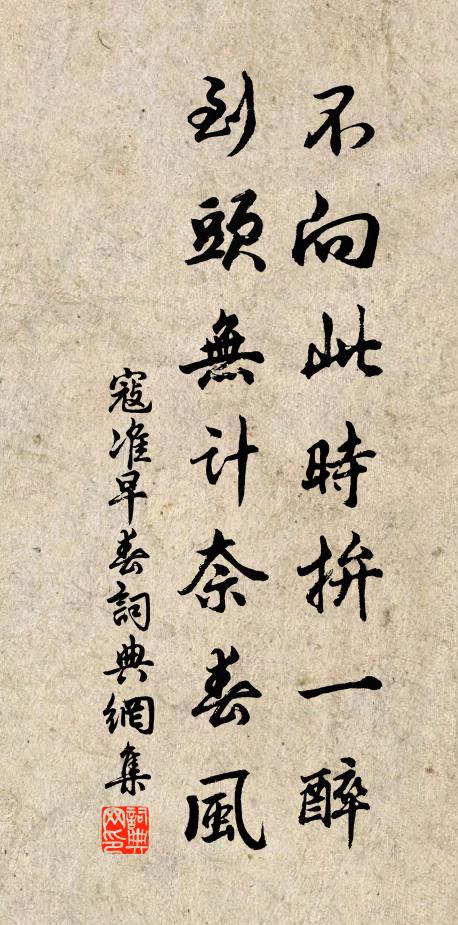 不向此時拚一醉
到頭無计奈春風
寇准早春詞典網集
詞典网印